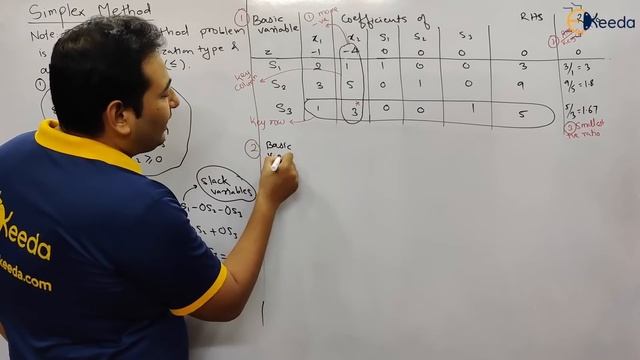 Simplex Method
Note
method problem
is
ization type &
(≤).
≥ 0
Slack
variables
S1 - 0S2 - 0S3
S2 + 0S3
keeda
keeda.com
① Basic
variable
① more
-ve
Coefficients of
RHS
x1 x2 S1 S2 S3
z -1 -4 0 0 0 0
S1 2 1 1 0 0 3 3/1 = 3
S2 3 5 0 1 0 9 9/5 = 1.8
S3 1 3* 0 0 1 5 5/3 = 1.67
Key
column
Key row
③ Smallest
+ve ratio
② Basic
Ekeeda